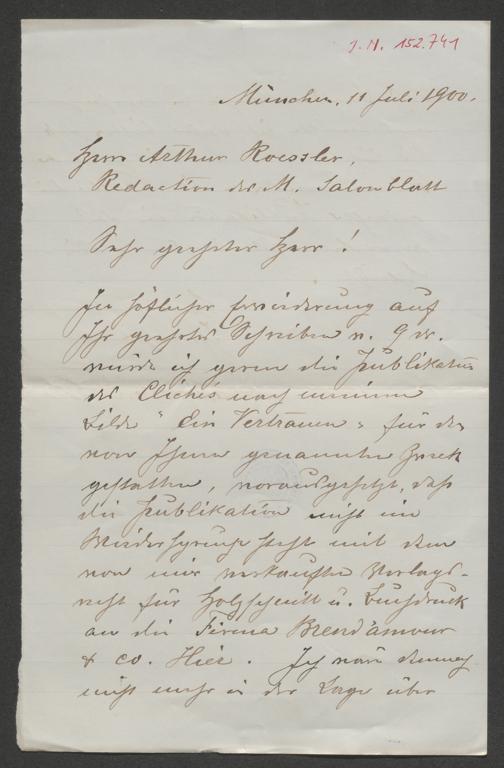 J. N. 152.741
München, 11 Juli 1900.
Herrn Arthur Roessler,
Redaction des M. Salonblatt
Sehr geehrter Herr!
In höflicher Erwiederung auf
Ihr geehrtes Schreiben v. 9 ds.
würde ich gerne die Publikation
des Clichés nach meinem
Bilde "Ein Vertrauen" für den
von Ihnen genannten Zweck
gestatten, vorausgesetzt, daß
die Publikation nicht im
Widerspruche steht mit dem
von mir verkauften Verlags-
recht für Holzschnitt u. Buchdruck
an die Firma Brend'amour
& co. Hier. Ich wäre demnach
nicht mehr in der Lage über